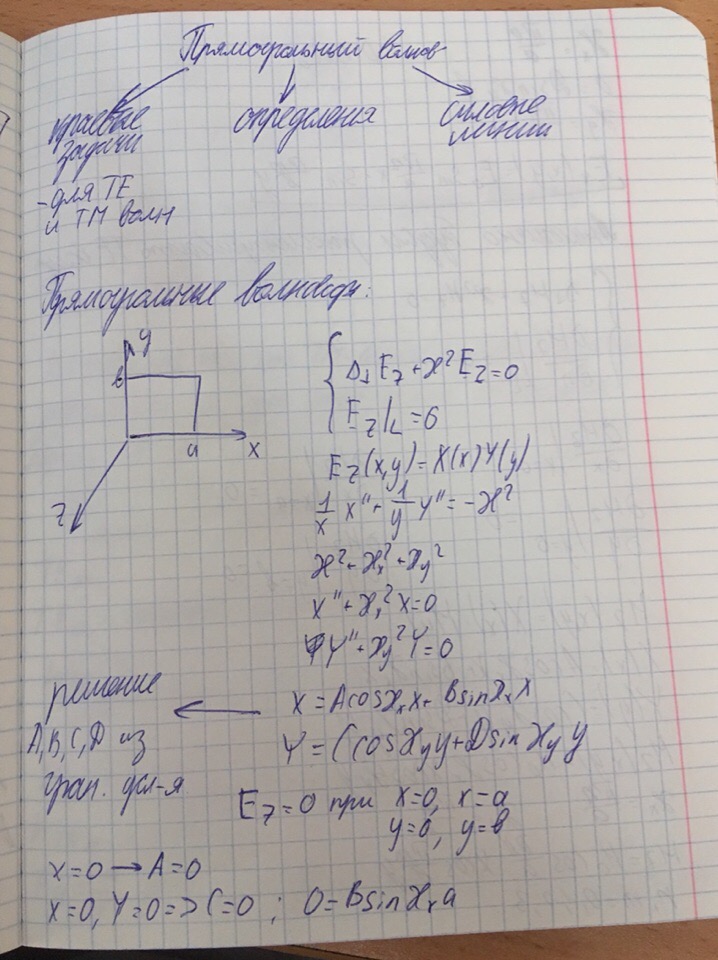 Прямоугольный волнов
краевые задачи
определения
силовые линии
- для TE
и TM волн
Прямоугольные волноводы:
y
в
a
x
z
Δ⊥ E_z + ϰ² E_z = 0
E_z|_L = 0
E_z(x,y) = X(x) Y(y)
1/x X'' + 1/y Y'' = -ϰ²
ϰ² = ϰ_x² + ϰ_y²
X'' + ϰ_x² X = 0
Y'' + ϰ_y² Y = 0
решение
A, B, C, D из
гран. усл-я
X = A cos ϰ_x x + B sin ϰ_x x
Y = C cos ϰ_y y + D sin ϰ_y y
E_z = 0 при x=0, x=a
y=0, y=в
x=0 → A=0
x=0, Y=0 => C=0 ; 0 = B sin ϰ_x a